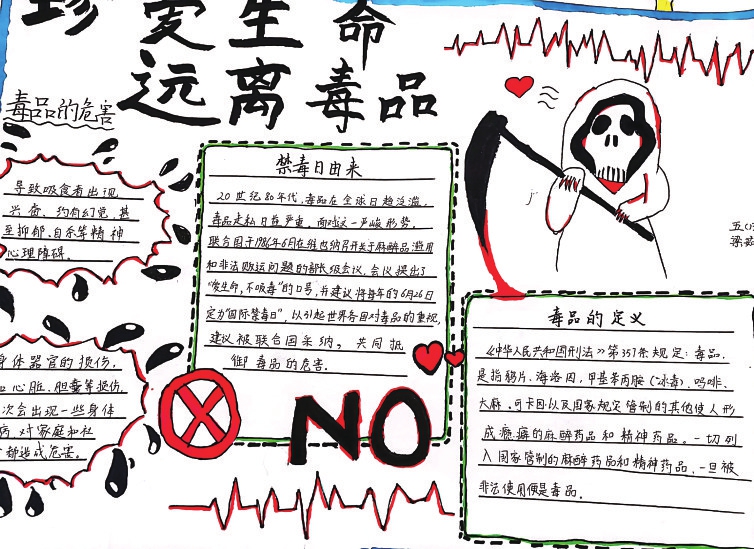 珍爱生命
远离毒品
毒品的危害
导致吸食者出现
兴奋、
幻觉,甚
至抑郁、自杀等精神
心理障碍.
身体器官的损伤,
心脏、胆囊等损伤,
次会出现一些身体
病,对家庭和社
都造成危害.
禁毒日由来
20世纪80年代,毒品在全球日趋泛滥,
毒品走私日益严重,面对这一严峻形势,
联合国于1987年6月在维也纳召开关于麻醉品滥用
和非法贩运问题的部长级会议,会议提出了
"爱生命,不吸毒"的口号,并建议将每年的6月26日
定为"国际禁毒日",以引起世界各国对毒品的重视,
建议被联合国采纳, 共同抵
御毒品的危害.
NO
毒品的定义
《中华人民共和国刑法》第357条规定:毒品,
是指鸦片,海洛因,甲基苯丙胺(冰毒),吗啡、
大麻,可卡因以及国家规定管制的其他使人形
成瘾癖的麻醉药品和精神药品.一切列
入国家管制的麻醉药品和精神药品,一旦被
非法使用便是毒品.